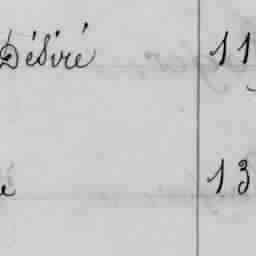 Désiré 11
e 13